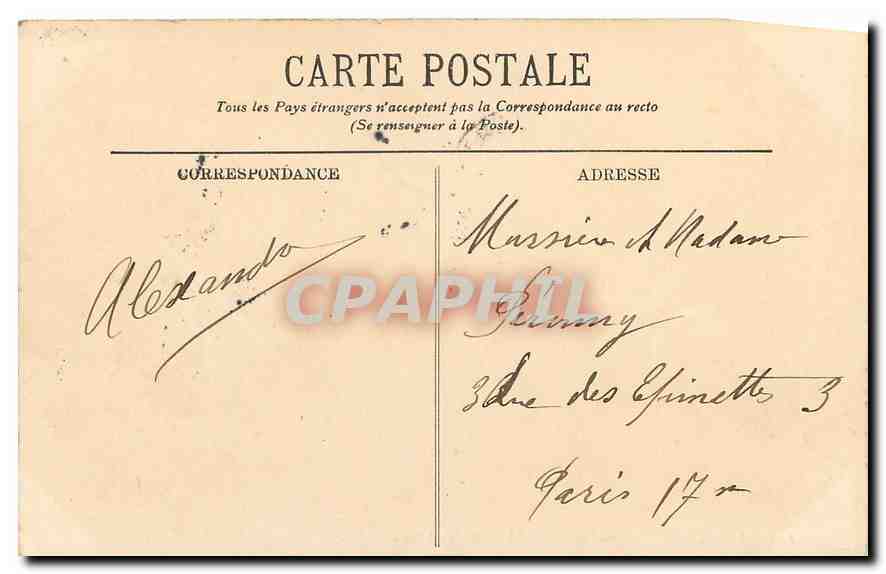 CARTE POSTALE
Tous les Pays étrangers n'acceptent pas la Correspondance au recto
(Se renseigner à la Poste).
CORRESPONDANCE
ADRESSE
Alexandre
CPAPHIL
et Madame
3 Rue des Epinettes 3
Paris 17